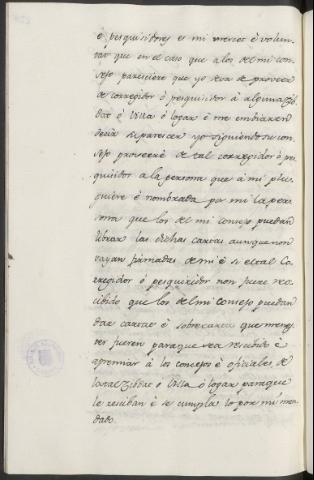 è pesquisidores es mi merced è volun-
tat que en el caso que a los del mi con-
sejo paresciere que yo deva de proveer
de corregidor ò pesquisidor à alguna Zib-
dat ò Villa ò logar è me embiaren
decir su parescer yo siguiendo su con-
sejo proveerè de tal corregidor ò pes-
quisidor a la persona que à mi plu-
guiere è nombrada por mi la per-
sona que los del mi consejo puedan
librar las dichas cartas aunque non
vayan firmadas de mi è si el tal Co-
rregidor ò pesquisidor non fuere res-
cibido que los del mi consejo puedan
dar cartas è sobrecartas que menes-
ter fueren para que sea rescibido è
apremiar à los concejos è oficiales de
la tal Zibdat ò Villa ò logar para que
le resciban è se cumpla lo por mi man-
dado.